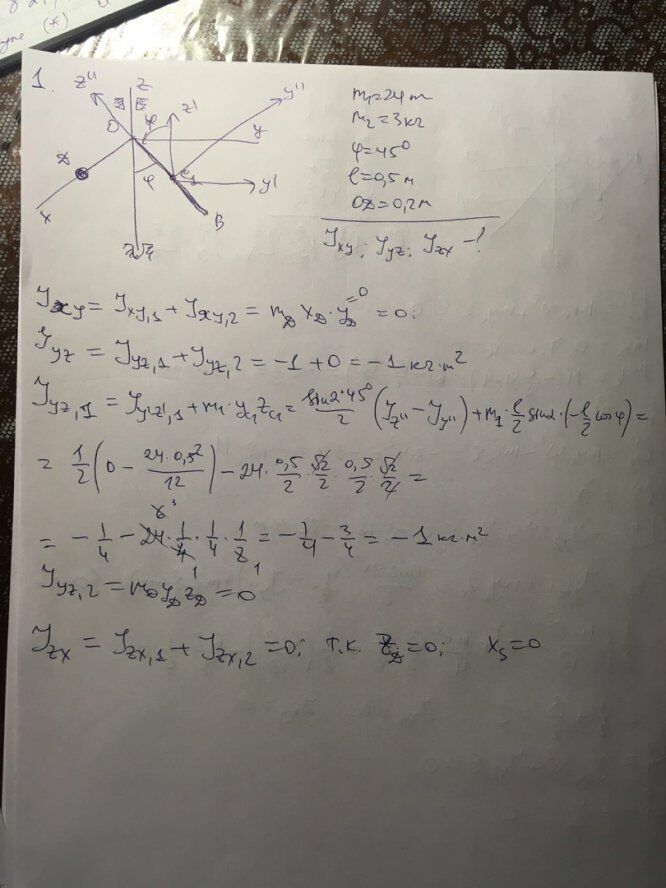 1.
z'' z y''
O φ z' y
D φ C₁ y'
x B
m₁=24 кг
m₂=3кг
φ=45°
ℓ=0,5 м
OD=0,2м
J_xy; J_yz; J_zx -?
J_xy = J_xy,1 + J_xy,2 = m_D x_D · y_D = 0;
=0
J_yz = J_yz,1 + J_yz,2 = -1 + 0 = -1 кг·м²
J_yz,1 = J_y'z',1 + m₁·y_C₁z_C₁ = sin2·45°/2 (J_z'' - J_y'') + m₁·ℓ/2 sinα·(-ℓ/2 cosφ) =
= 1/2 (0 - 24·0,5²/12) - 24· 0,5/2 · √2/2 · 0,5/2 · √2/2 =
= -1/4 - 24·1/4·1/4·1/2 = -1/4 - 3/4 = -1 кг·м²
J_yz,2 = m_D y_D z_D = 0
J_zx = J_zx,1 + J_zx,2 = 0; т.к. z_D=0; x_S=0